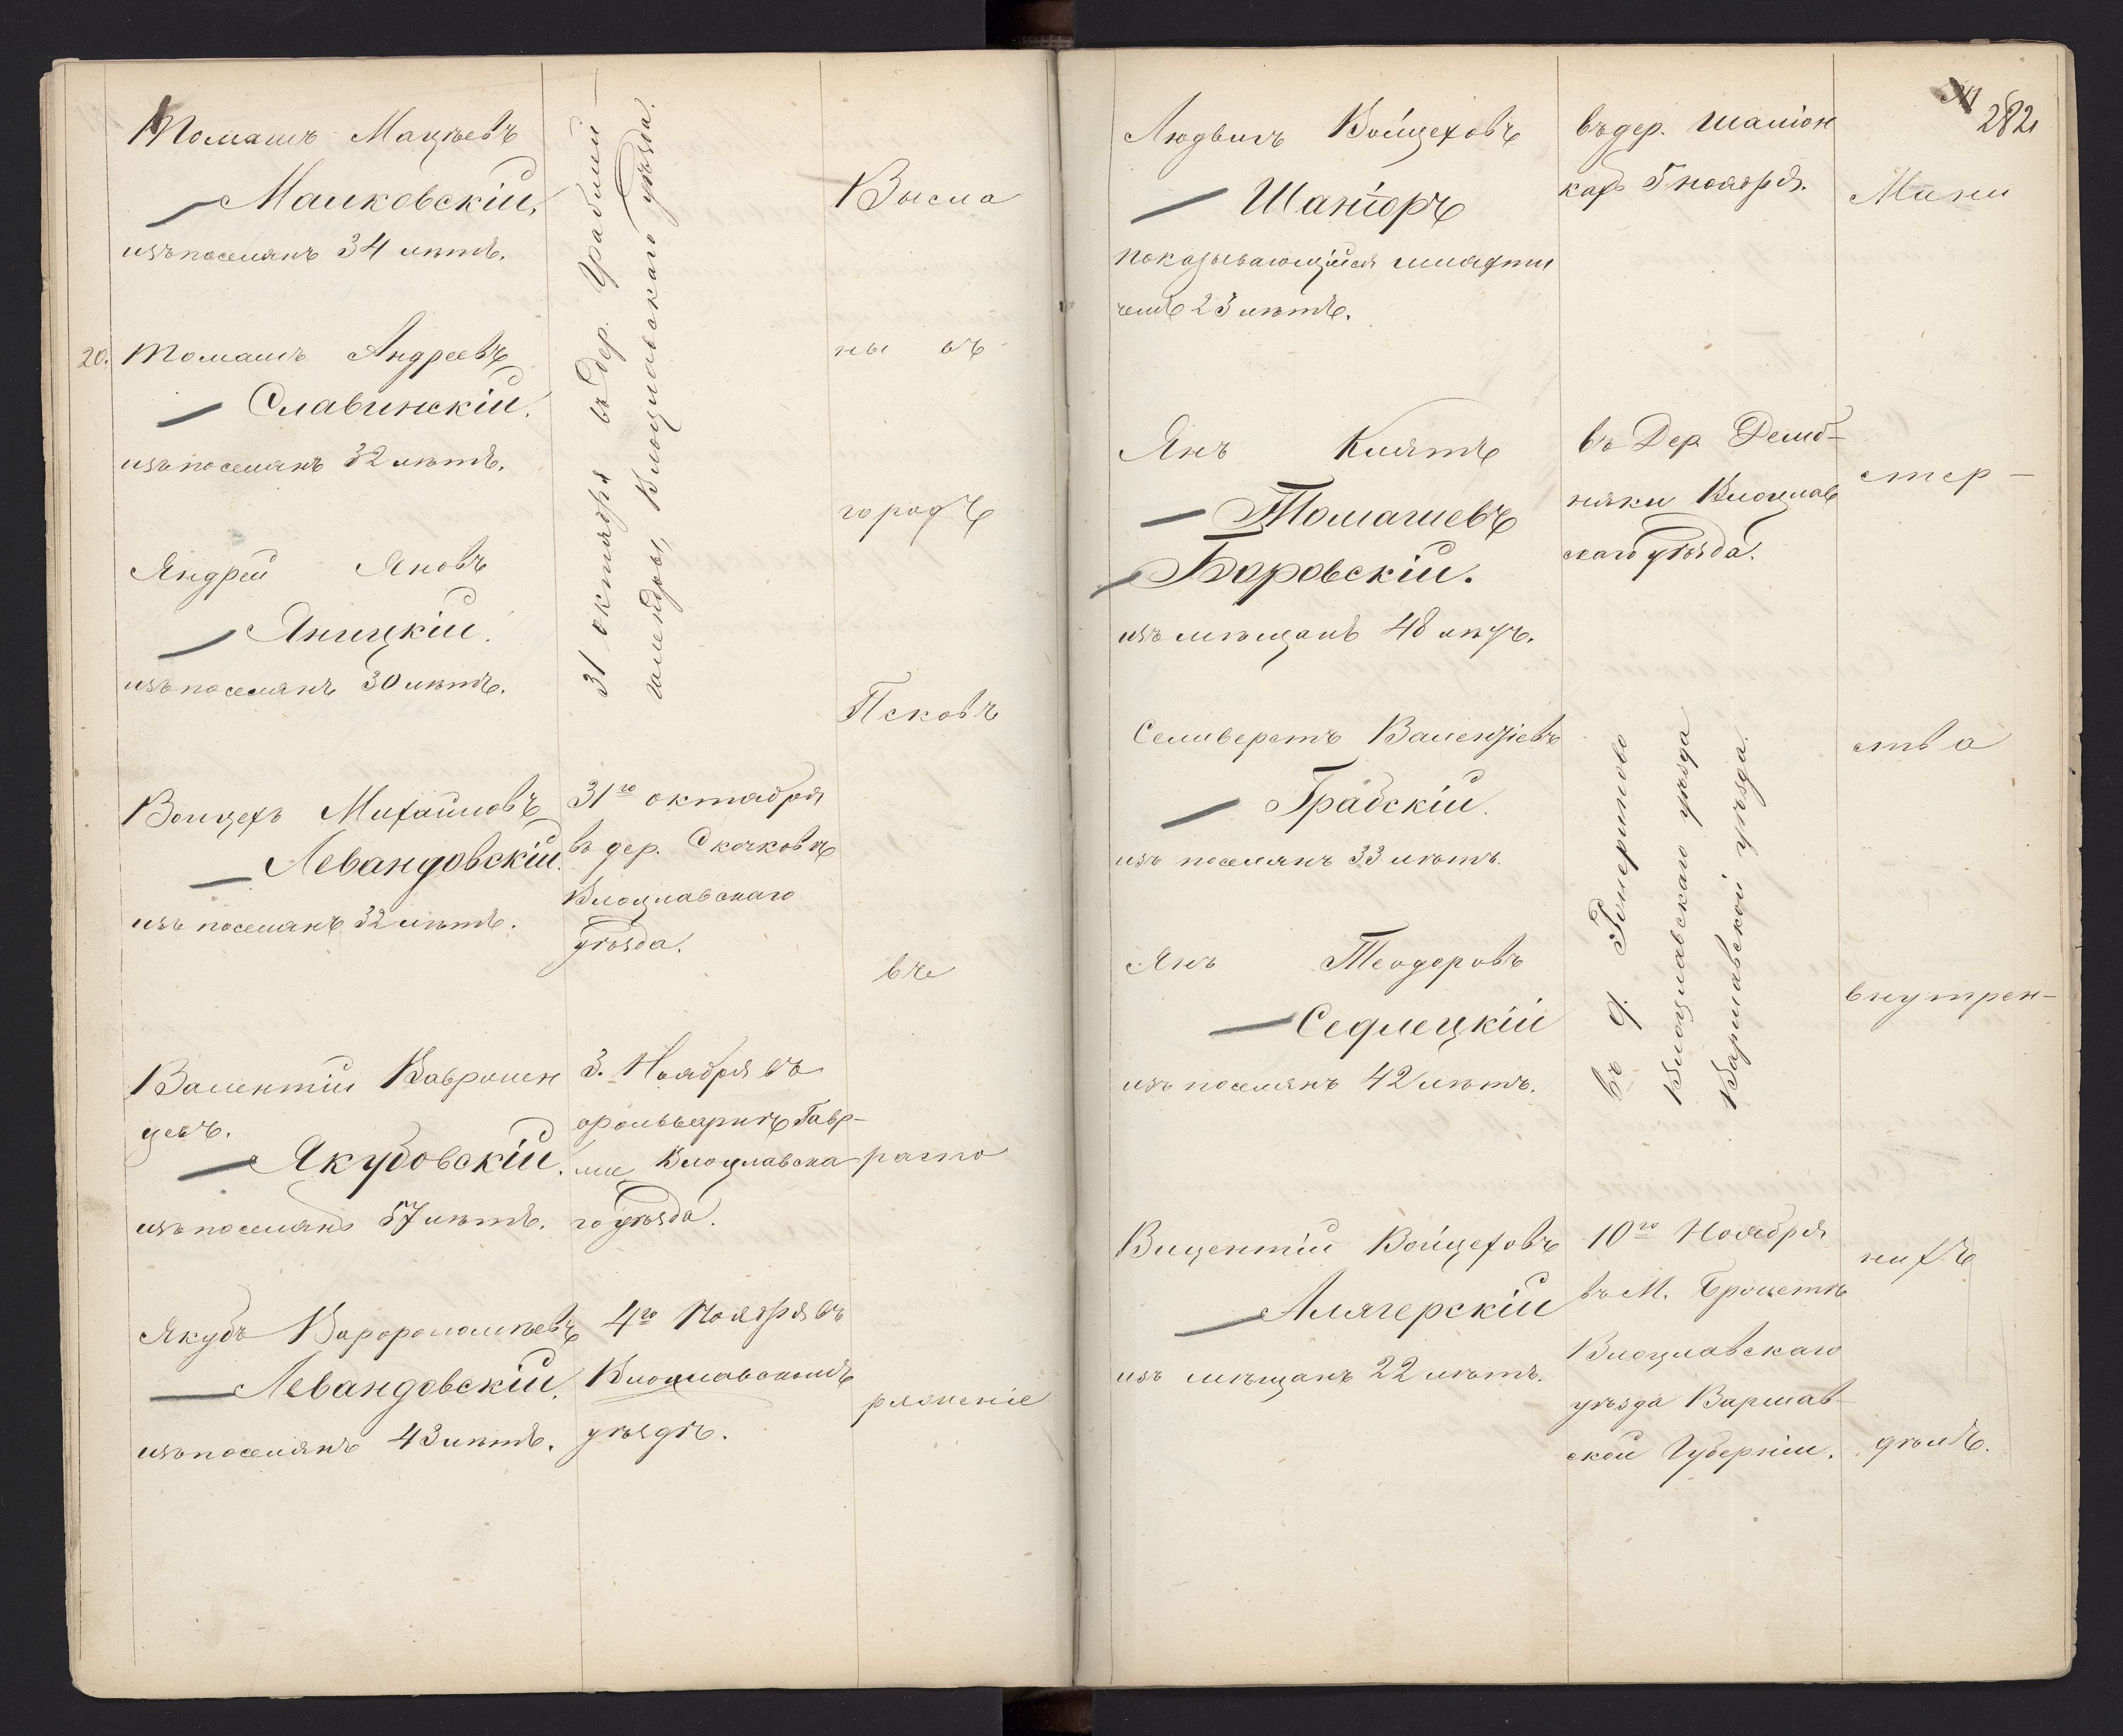 Томашъ Мацѣевъ
Малковскій,
изъ поселянъ 34 лѣтъ.
20. Томашъ Андреевъ
Славинскій.
изъ поселянъ 32 лѣтъ.
Андрей Яновъ
Яницкій.
изъ поселянъ 30 лѣтъ.
31 октября въ Дер.
Влоцлавскаго уѣзда.
Войцехъ Михайловъ
Левандовскій.
изъ поселянъ 32 лѣтъ.
31го октября
въ дер. Скочковѣ
Влоцлавскаго
уѣзда.
Валентій Вавржен
цевъ.
Якубовскій.
изъ поселянъ 57 лѣтъ.
3. Ноября въ
фольваркѣ
Влоцлавска
го уѣзда.
Якубъ
Левандовскій.
изъ поселянъ 43 лѣтъ.
4го Ноября въ
Влоцлавскомъ
уѣздѣ.
Высла
ны въ
городъ
Псковъ
въ
распо
ряженіе
282
Людвигъ Войцеховъ
Шаніоръ
показывающійся шляхти
чемъ 23 лѣтъ.
въ дер. Шаліон
кахъ 5 ноября.
Янъ Кплятъ
Томашевъ
Боровскій.
изъ мѣщанъ 48 лѣтъ.
въ Дер. Демб-
няки Влоцлав
скаго уѣзда.
Селиверстъ Валентіевъ
Грабскій.
изъ поселянъ 33 лѣтъ.
Янъ Теодоровъ
Седлецкій
изъ поселянъ 42 лѣтъ.
въ д.
Влоцлавскаго уѣзда
Варшавской уѣзда.
Вицентій Войцеховъ
Алягерскій
изъ мѣщанъ 22 лѣтъ.
10го Ноября
въ М.
Влоцлавскаго
уѣзда Варшав-
ской Губерніи.
Мини
стер-
ства
внутрен-
нихъ
дѣлъ.